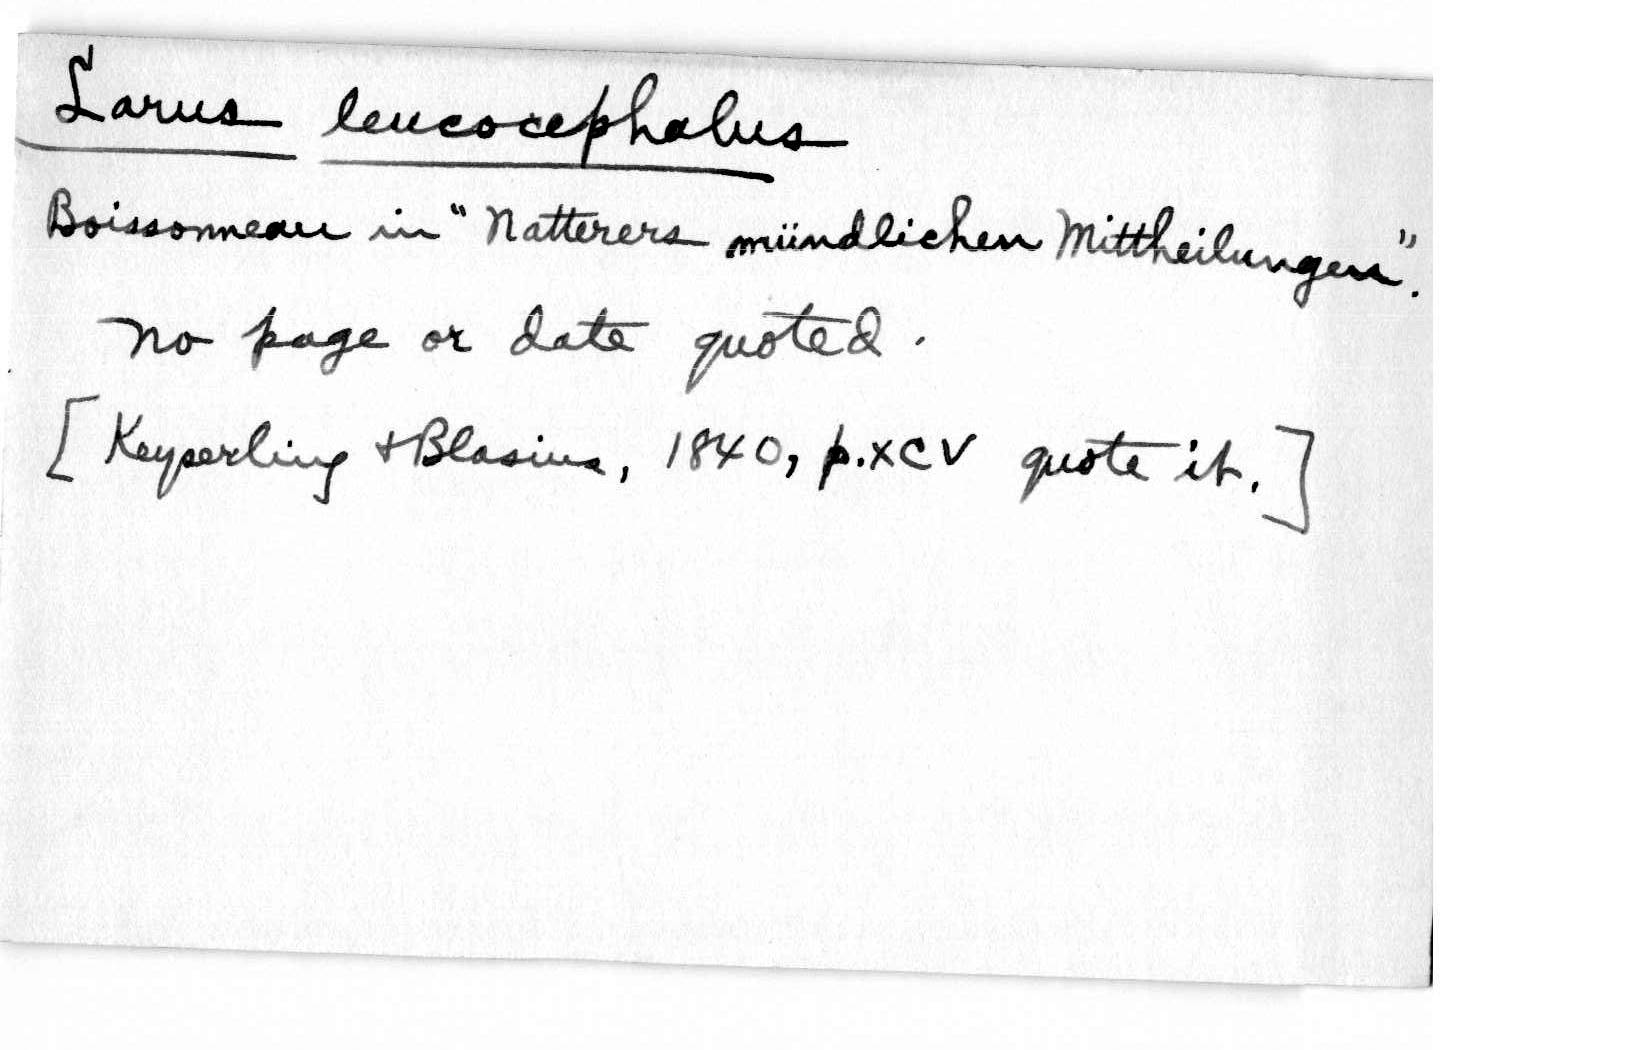 Larus leucocephalus
Boissonneau in "Natterers mündlichen Mittheilungen".
no page or date quoted.
[Keyserling + Blasius, 1840, p. XCV quote it.]